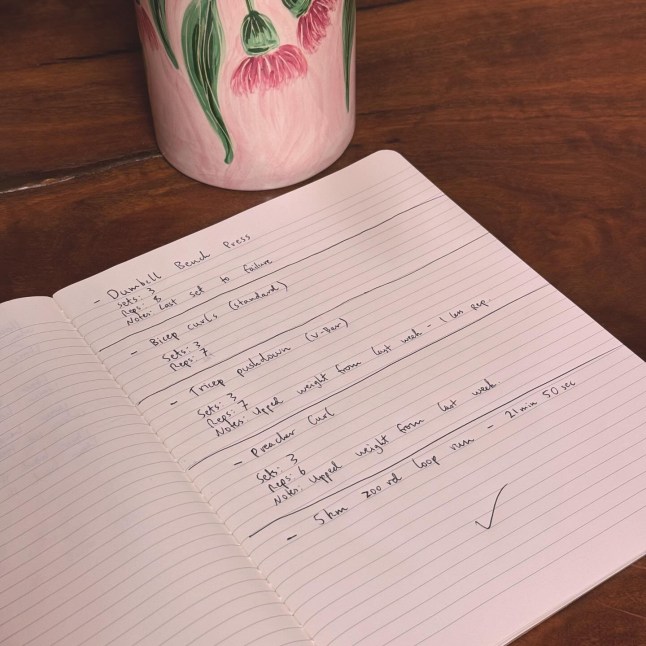 - Dumbell Bench Press
Sets: 3
Reps: 8
Notes: Last set to failure
- Bicep curls (standard)
Sets: 3
Reps: 7
- Tricep pushdown (V-Bar)
Sets: 3
Reps: 7
Notes: Upped weight from last week - 1 less rep.
- Preacher Curl
Sets: 3
Reps: 6
Notes: Upped weight from last week.
- 5km zoo rd loop run - 21min 50 sec